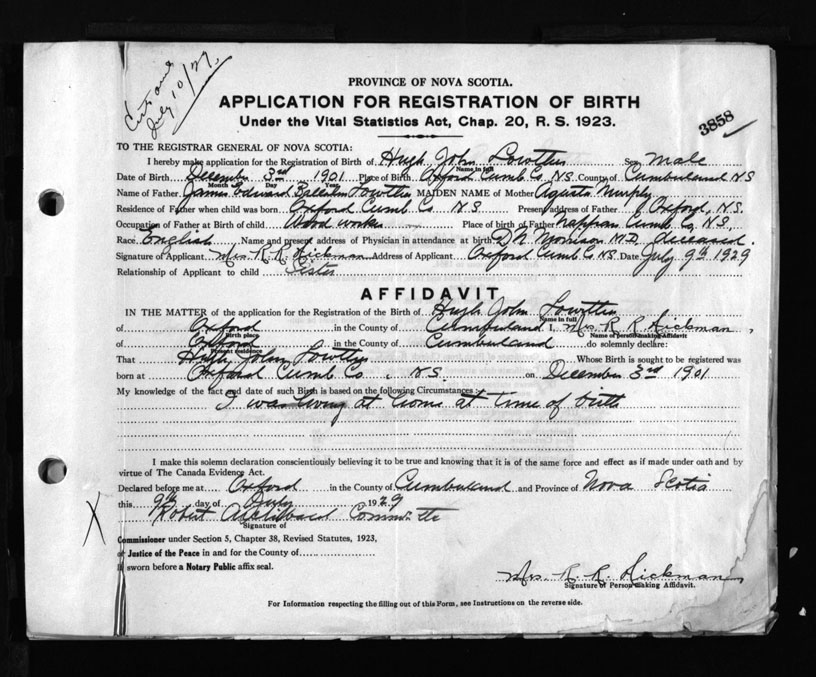 July 10/29.
PROVINCE OF NOVA SCOTIA.
APPLICATION FOR REGISTRATION OF BIRTH
Under the Vital Statistics Act, Chap. 20, R. S. 1923.
3858
TO THE REGISTRAR GENERAL OF NOVA SCOTIA:
I hereby make application for the Registration of Birth of Hugh John Lowther Sex Male
Name in full
Date of Birth December 3rd 1901 Place of Birth Oxford Cumb Co. N.S. County of Cumberland N S
Month Day Year
Name of Father James Edward Lowther MAIDEN NAME of Mother Agusta Murphy
Residence of Father when child was born Oxford Cumb Co N S Present address of Father Oxford, N.S.
Occupation of Father at Birth of child Wood worker Place of birth of Father Nappan Cumb Co, N.S,
Race English Name and present address of Physician in attendance at birth D. N. Morrison M.D. deceased.
Signature of Applicant Mrs. R. R. Hickman Address of Applicant Oxford Cumb Co N.S. Date July 9th 1929
Relationship of Applicant to child Sister
AFFIDAVIT
IN THE MATTER of the application for the Registration of the Birth of Hugh John Lowther
Name in full
of Oxford in the County of Cumberland I, Mrs. R R Hickman,
Birth place Name of person making Affidavit
of Oxford in the County of Cumberland do solemnly declare:
Present residence
That Hugh John Lowther Whose Birth is sought to be registered was
born at Oxford Cumb Co. N.S. on December 3rd 1901
My knowledge of the fact and date of such Birth is based on the following Circumstances:
I was living at home at time of birth
I make this solemn declaration conscientiously believing it to be true and knowing that it is of the same force and effect as if made under oath and by
virtue of The Canada Evidence Act.
Declared before me at Oxford in the County of Cumberland and Province of Nova Scotia
this 9th day of July 1929
Robert Archibald
Signature of
Commissioner under Section 5, Chapter 38, Revised Statutes, 1923,
or Justice of the Peace in and for the County of
If sworn before a Notary Public affix seal.
Mrs. R. R. Hickman
Signature of Person making Affidavit.
For Information respecting the filling out of this Form, see Instructions on the reverse side.